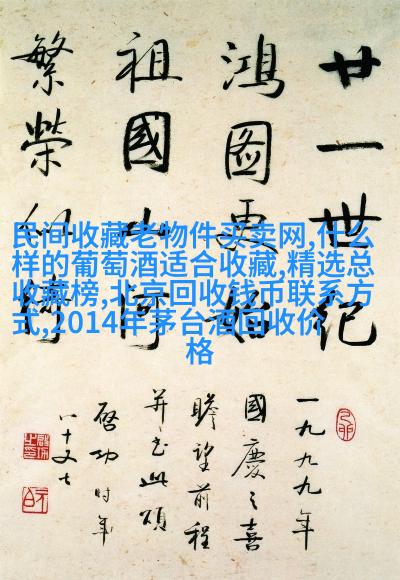 廿一世紀
鴻圖更始
祖國山河
繁榮似錦
一九九九年
國慶之喜
瞻望前程
并書此頌
啓功時年
八十又七
民间收藏老物件买卖网,什么
样的葡萄酒适合收藏,精选总
收藏榜,北京回收钱币联系方
式,2014年茅台酒回收价
格